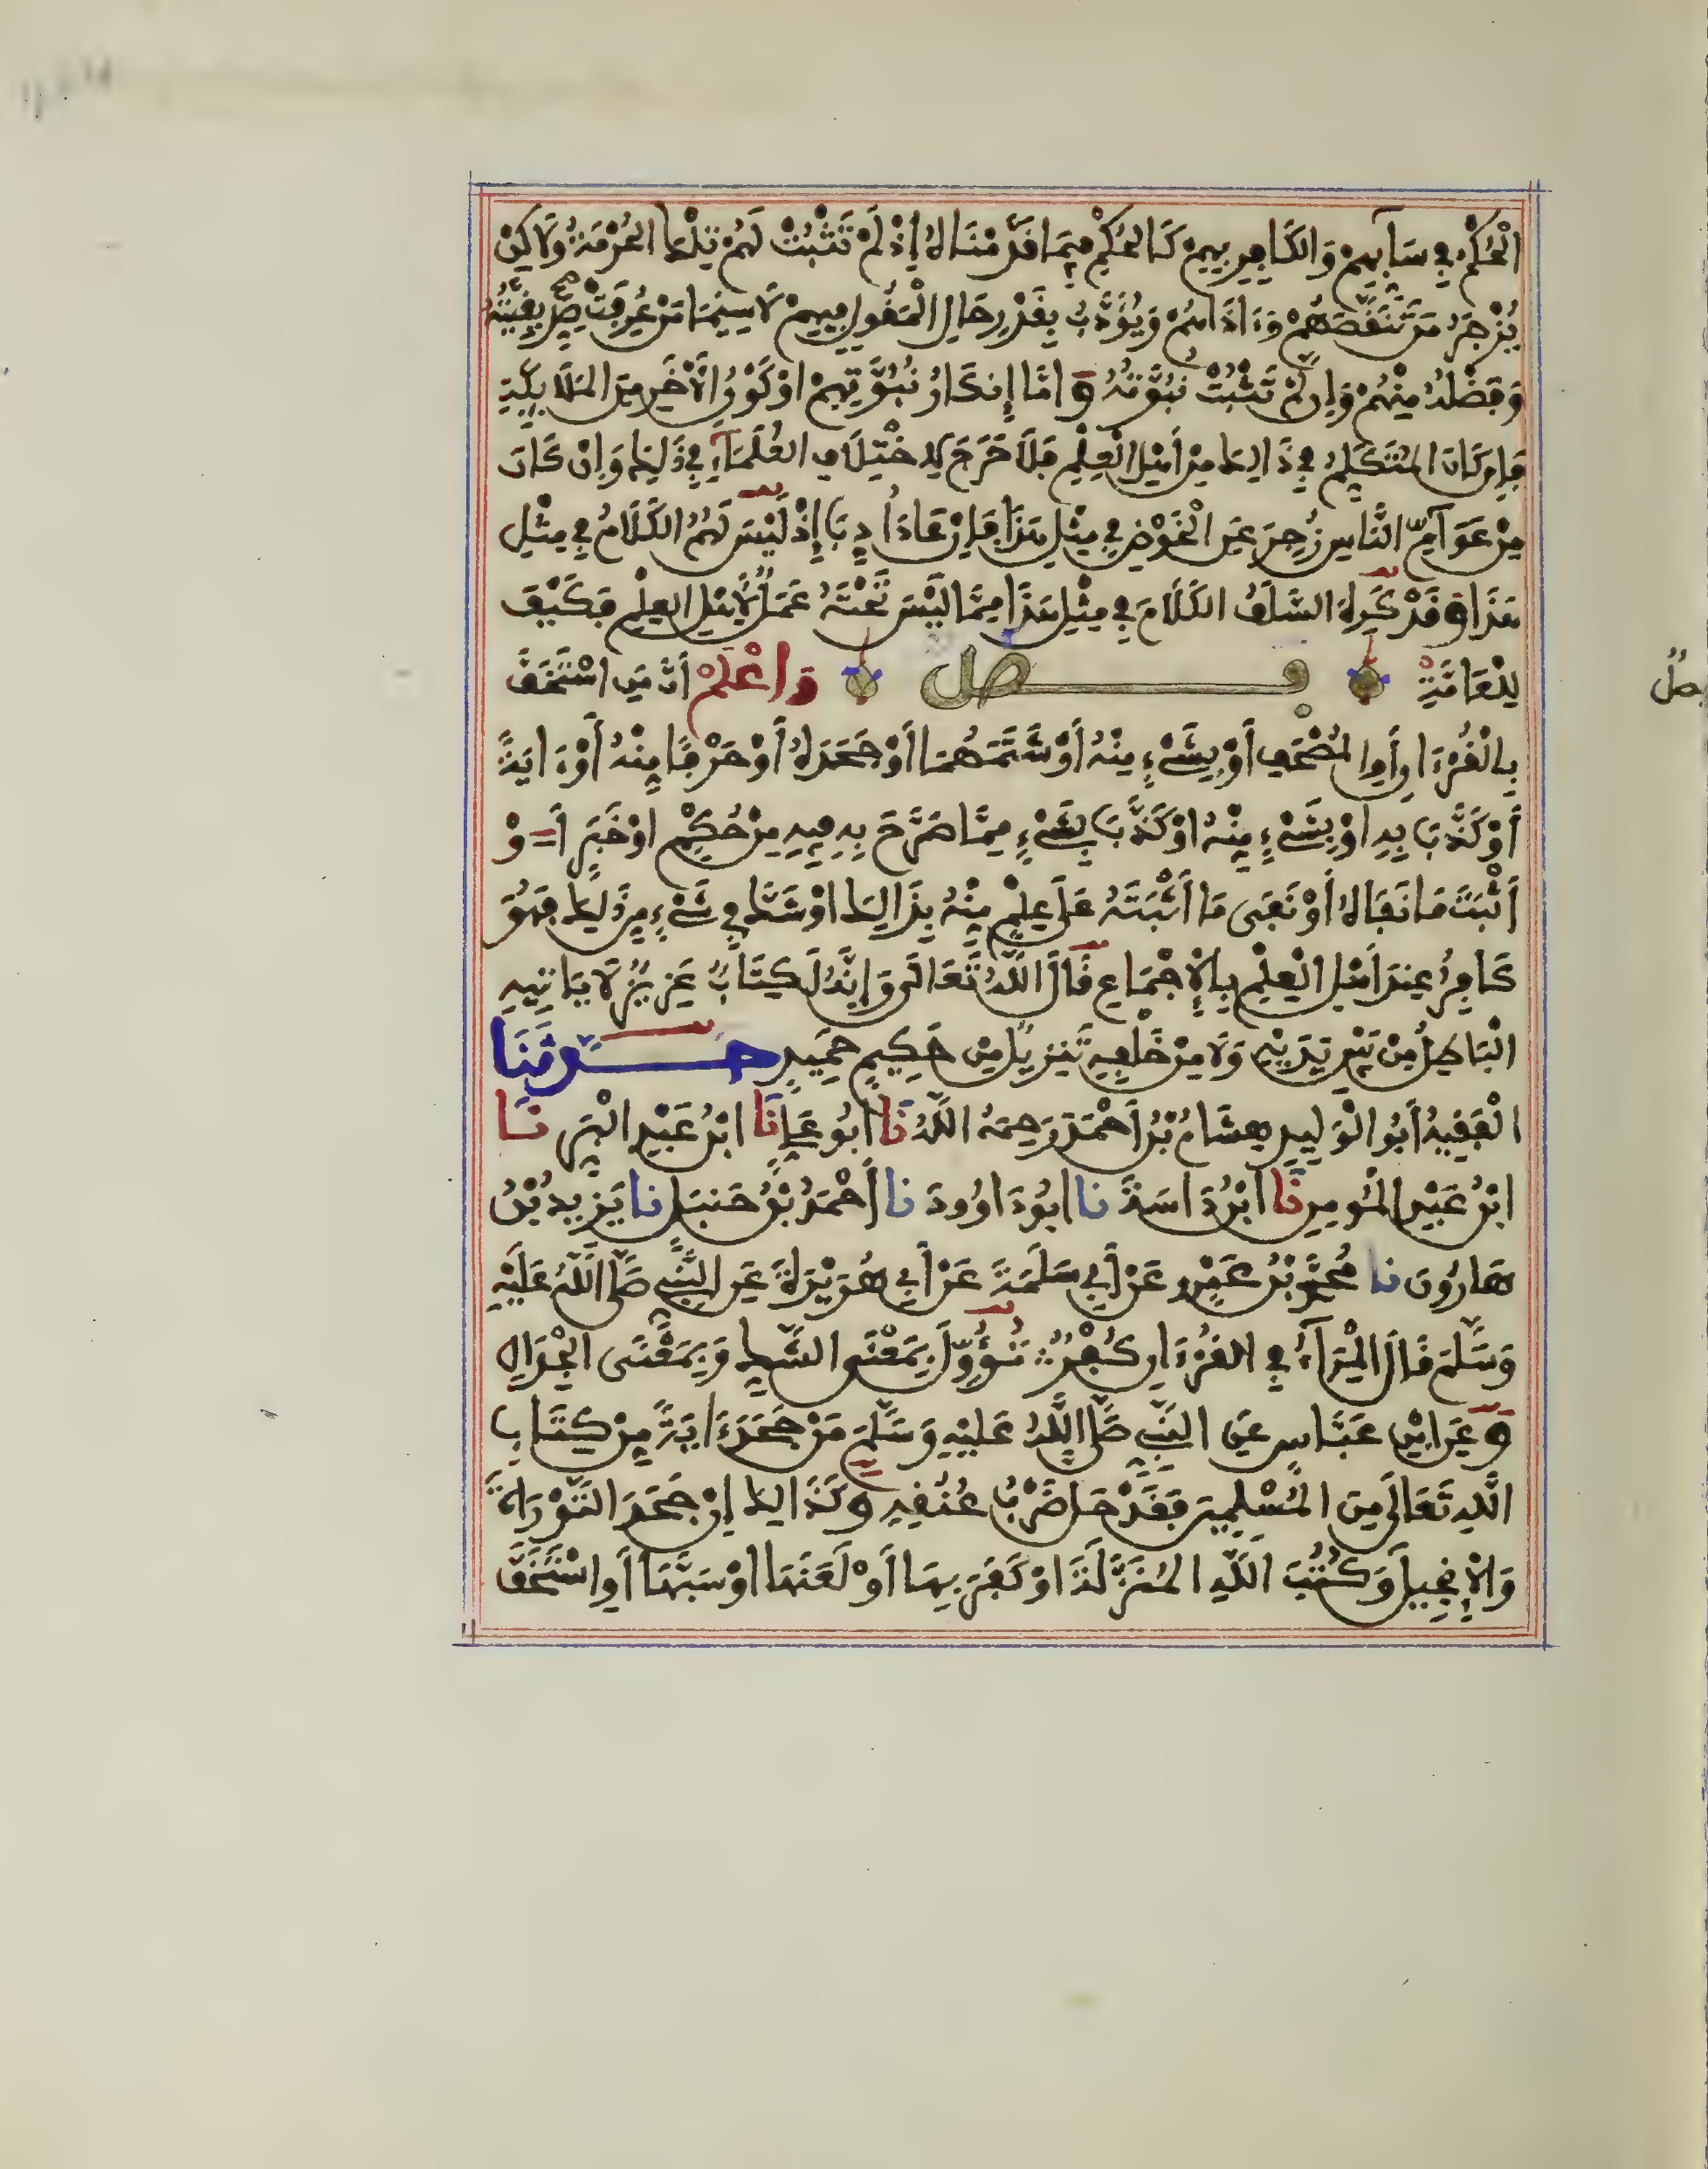 الْحُكْمُ فِي سَآبِّهِمْ وَالْكَافِرِ بِهِمْ كَالْحُكْمِ فِيمَا قَدَّمْنَاهُ إِذْ لَمْ تَثْبُتْ لَهُمْ تِلْكَ الْحُرْمَةُ وَلَاكِنْ
يُزْجَرُ مَنْ تَنَقَّصَهُمْ وَءَاذَاهُمْ وَيُؤَدَّبُ بِقَدْرِ حَالِ الْمَقُولِ فِيهِمْ لَاسِيَّمَا مَنْ عُرِفَتْ صِدِّيقِيَّتُهُ
وَفَضْلُهُ مِنْهُمْ وَإِن لَّمْ تَثْبُتْ نُبُوَّتُهُ وَامَّا إِنكَارُ نُبُوَّتِهِمْ اوْ كَوْنُ الْأَخَرِ مِنَ الْمَلَائِكَةِ
فَإِن كَانَ الْمُتَكَلِّمُ فِي ذَالِكَ مِنْ أَهْلِ الْعِلْمِ فَلَا حَرَجَ لِاخْتِلَافِ الْعُلَمَآءِ فِي ذَلِكَ وَإِنْ كَانَ
مِنْ عَوَآمِّ النَّاسِ زُجِرَ عَنِ الْخَوْضِ فِي مِثْلِ هَذَا فَإِنْ عَادَ أُدِّبَ إِذْ لَيْسَ لَهُمُ الْكَلَامُ فِي مِثْلِ
هَذَا وَقَدْ كَرِهَ السَّلَفُ الْكَلَامَ فِي مِثْلِ هَذَا مِمَّا لَيْسَ تَحْتَهُ عَمَلٌ لِأَهْلِ الْعِلْمِ فَكَيْفَ
لِلْعَامَّةِ فصل وَاعْلَمْ أَنَّ مَنِ اسْتَخَفَّ
فصل
بِالْقُرْءَانِ أَوِ الْمُصْحَفِ أَوْ بِشَيْءٍ مِنْهُ أَوْ شَتَمَهُمَا أَوْ جَحَدَهُ أَوْ حَرْفًا مِنْهُ أَوْ ءَايَةً
أَوْ كَذَّبَ بِهِ اوْ بِشَيْءٍ مِنْهُ اوْ كَذَّبَ بِشَيْءٍ مِمَّا صَرَّحَ بِهِ فِيهِ مِنْ حُكْمٍ اوْ خَبَرٍ أَوْ
أَثْبَتَ مَا نَفَاهُ أَوْ نَفَى مَا أَثْبَتَهُ عَلَى عِلْمٍ مِنْهُ بِذَالِكَ اوْ شَكَّ فِي شَيْءٍ مِن ذَلِكَ فَهُوَ
كَافِرٌ عِندَ أَهْلِ الْعِلْمِ بِالْإِجْمَاعِ قَالَ اللَّهُ تَعَالَى وَإِنَّهُ لَكِتَابٌ عَزِيزٌ لَا يَاتِيهِ
الْبَاطِلُ مِنْ بَيْنِ يَدَيْهِ وَلَا مِنْ خَلْفِهِ تَنزِيلٌ مِنْ حَكِيمٍ حَمِيدٍ حَدَّثَنَا
الْفَقِيهُ أَبُو الْوَلِيدِ هِشَامُ بْنُ أَحْمَدَ رَحِمَهُ اللَّهُ نَا أَبُو عَلِيٍّ نَا ابْنُ عَبْدِ الْبَرِّ نَا
ابْنُ عَبْدِ الْمُومِنِ نَا ابْنُ دَاسَةَ نَا ابُو دَاوُودَ نَا أَحْمَدُ بْنُ حَنبَلٍ نَا يَزِيدُ بْنُ
هَارُونَ نَا مُحَمَّدُ بْنُ عَمْرٍو عَنْ أَبِي سَلَمَةَ عَنْ أَبِي هُرَيْرَةَ عَنِ النَّبِيِّ صَلَّى اللَّهُ عَلَيْهِ
وَسَلَّمَ قَالَ الْمِرَآءُ فِي الْقُرْءَانِ كُفْرٌ تُؤُوِّلَ بِمَعْنَى الشَّكِّ وَبِمَعْنَى الْجِدَالِ
وَعَنِ ابْنِ عَبَّاسٍ عَنِ النَّبِيِّ صَلَّى اللَّهُ عَلَيْهِ وَسَلَّمَ مَنْ جَحَدَ ءَايَةً مِنْ كِتَابِ
اللَّهِ تَعَالَى مِنَ الْمُسْلِمِينَ فَقَدْ حَلَّ ضَرْبُ عُنُقِهِ وَكَذَالِكَ إِنْ جَحَدَ التَّوْرَاةَ
وَالْإِنجِيلَ وَكُتُبَ اللَّهِ الْمُنَزَّلَةَ اوْ كَفَرَ بِهَا أَوْ لَعَنَهَا اوْ سَبَّهَا أَوِ اسْتَخَفَّ